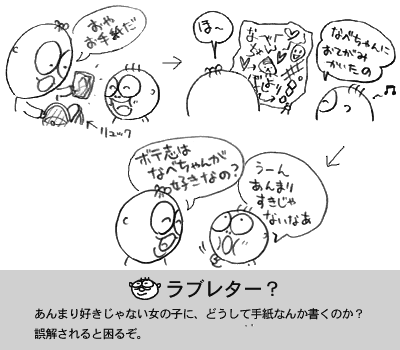 おや
お手紙だ
リュック
ほ〜
なーべー
ちゃんへ
なべちゃんに
おてがみ
かいたの
ボテ志は
なべちゃんが
好きなの?
うーん
あんまり
すきじゃ
ないなあ
ラブレター?
あんまり好きじゃない女の子に、どうして手紙なんか書くのか?
誤解されると困るぞ。